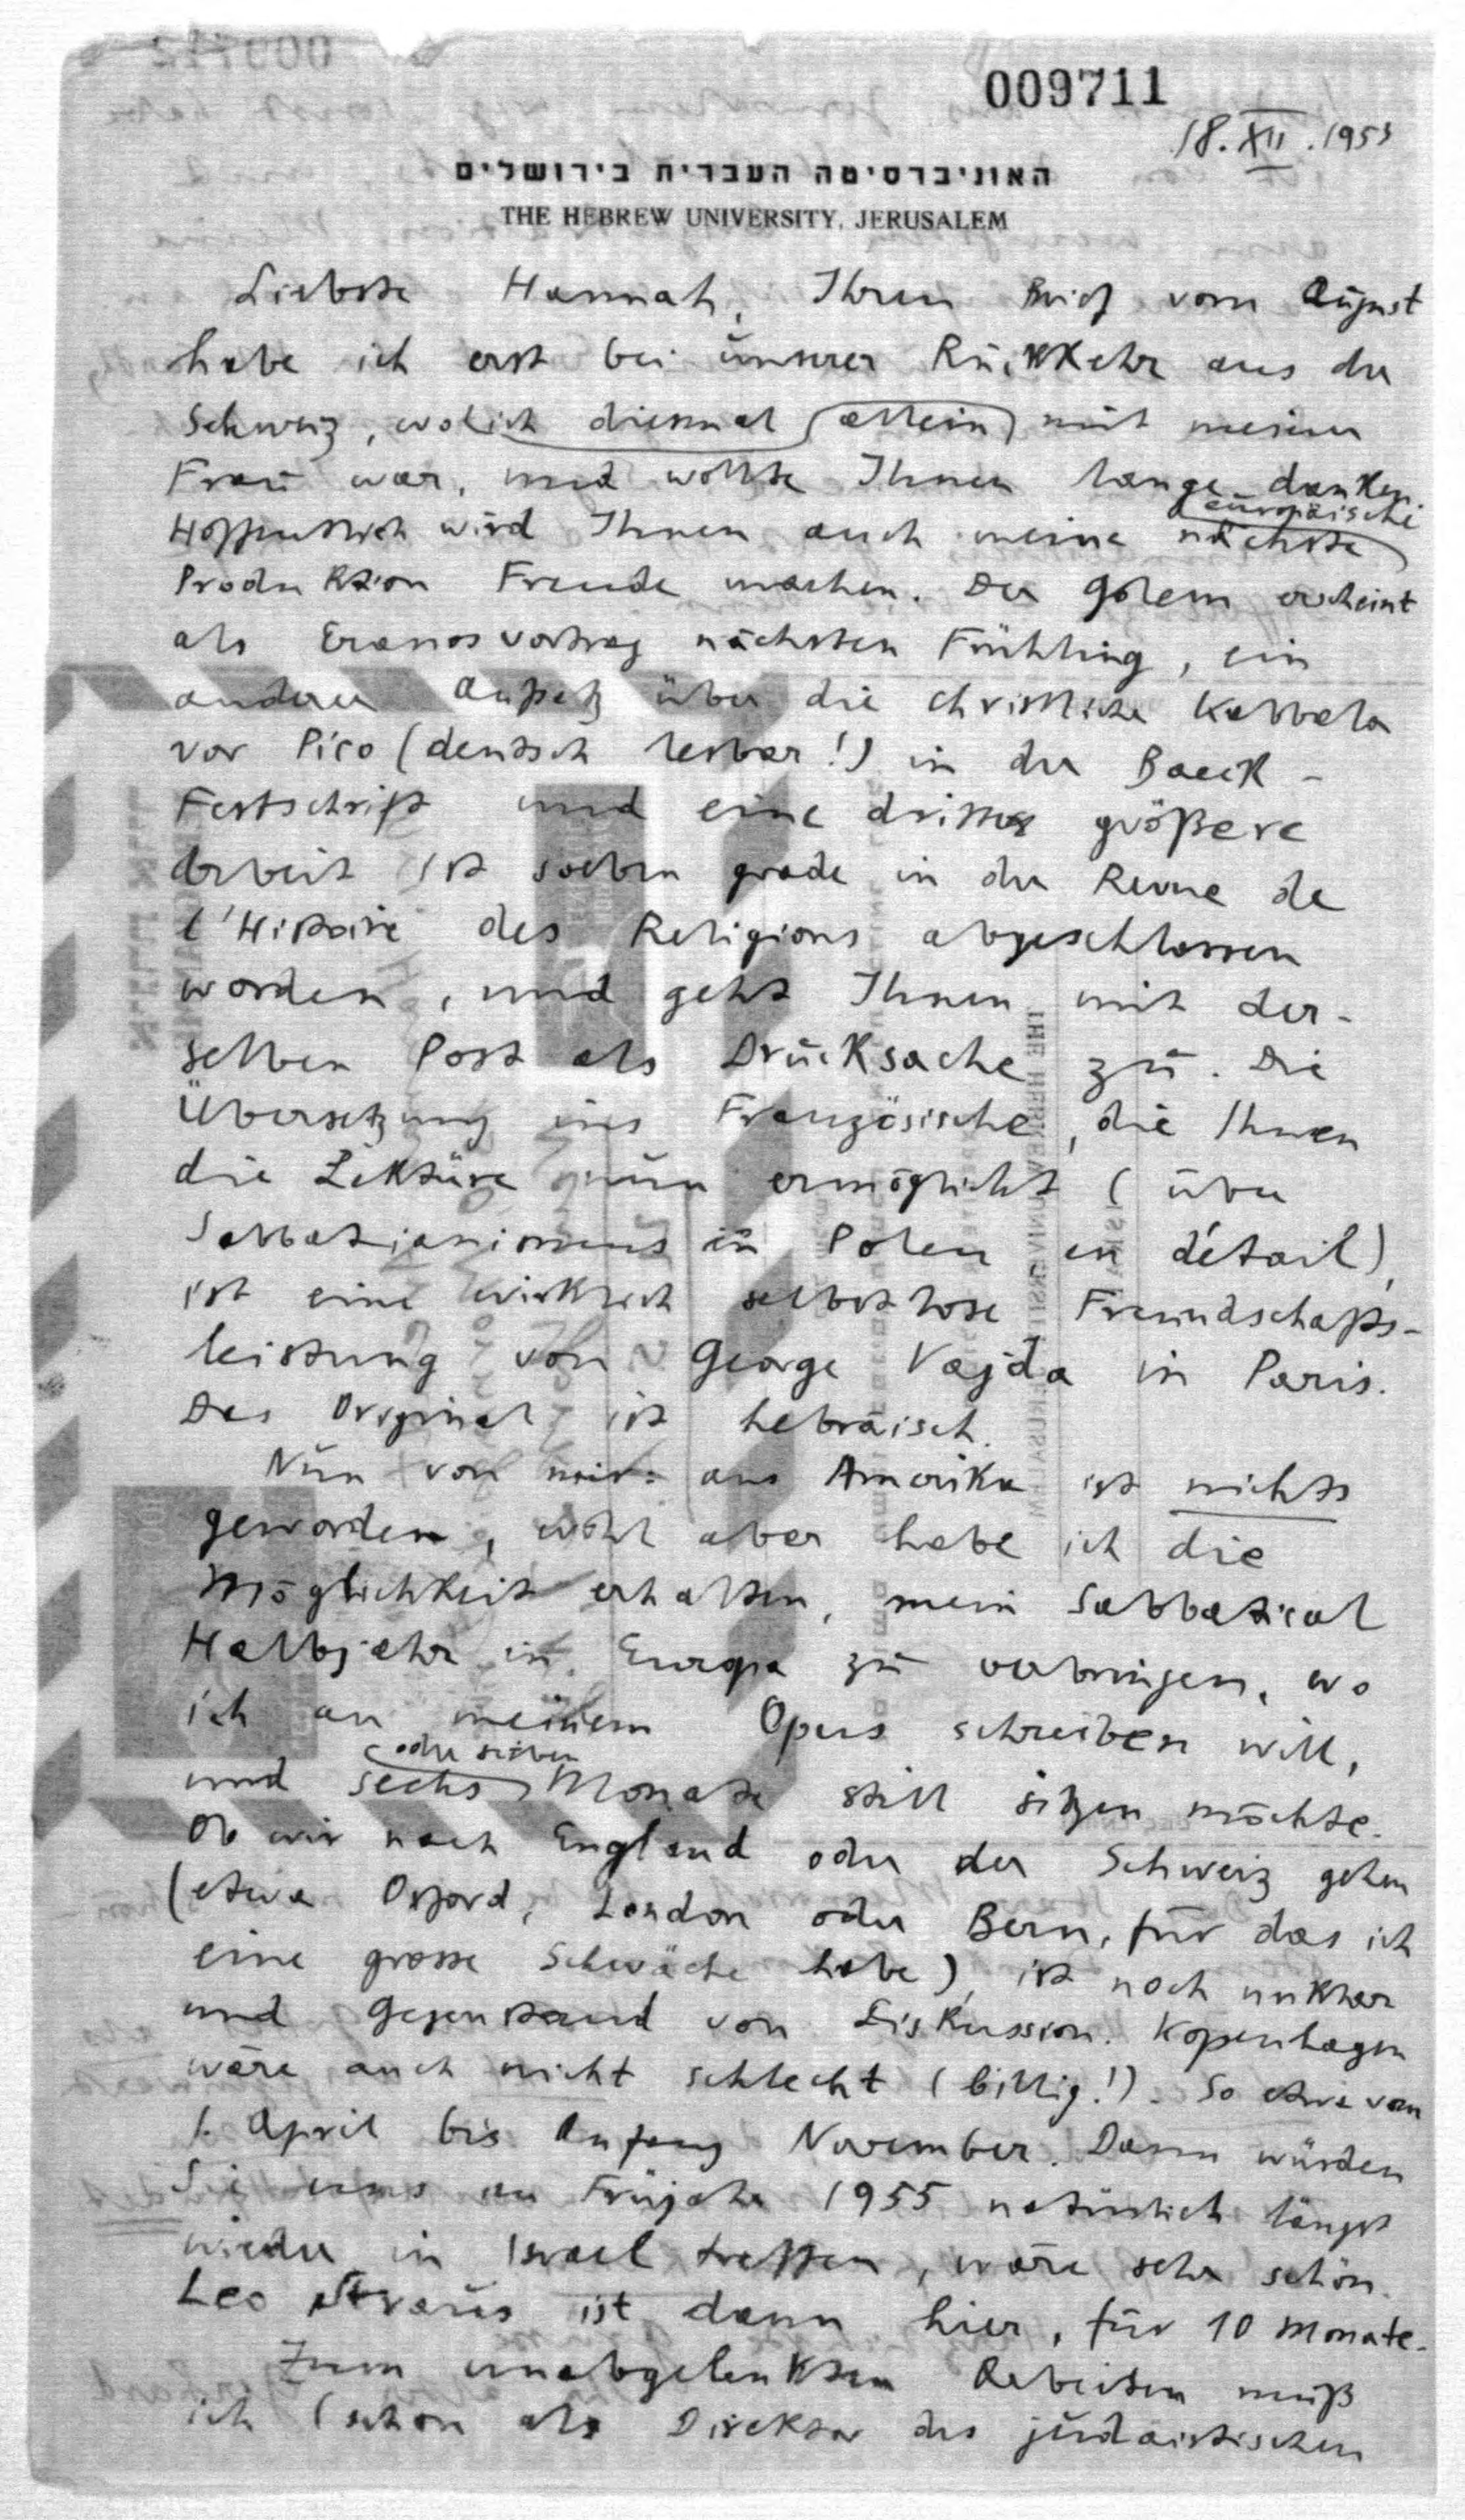 009711
18.XII.1953
האוניברסיטה העברית בירושלים
THE HEBREW UNIVERSITY, JERUSALEM
Liebste Hannah, Ihren Brief vom August
habe ich erst bei unserer Rückkehr aus der
Schweiz, wo ich diesmal allein mit meiner
Frau war, und wollte Ihnen lange danken.
europäische
Hoffentlich wird Ihnen auch meine nächste
Produktion Freude machen. Der Golem erscheint
als Eranosvortrag nächsten Frühling, ein
anderer Aufsatz über die christliche Kabbala
vor Pico (deutsch lesbar!) in der Baeck-
Festschrift und eine dritte größere
Arbeit ist soeben grade in der Revue de
l'Histoire des Religions abgeschlossen
worden, und geht Ihnen mit der-
selben Post als Drucksache zu. Die
Übersetzung ins Französische, die Ihnen
die Lektüre nun ermöglicht (über
Sabbatianismus in Polen, en détail),
ist eine wirklich selbstlose Freundschafts-
leistung von George Vajda in Paris.
Das Original ist hebräisch.
Nun von mir: aus Amerika ist nichts
geworden, wohl aber habe ich die
Möglichkeit erhalten, mein Sabbatical
Halbjahr in Europa zu verbringen, wo
ich an meinem Opus schreiben will,
oder sieben
und sechs Monate still sitzen möchte.
Ob wir nach England oder der Schweiz gehen
(etwa Oxford, London oder Bern, für das ich
eine grosse Schwäche habe), ist noch unklar
und Gegenstand von Diskussion. Kopenhagen
wäre auch nicht schlecht (billig!). So etwa vom
1. April bis Anfang November. Dann würden
Sie uns im Früjahr 1955 natürlich längst
wieder in Israel treffen, wäre sehr schön.
Leo Straus ist dann hier, für 10 Monate.
Zum unabgelenkten Arbeiten muß
ich (schon als Direktor des judaistischen